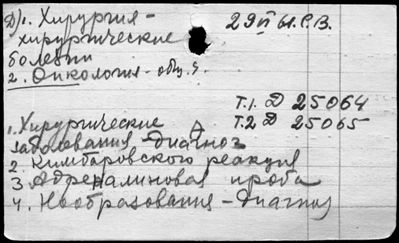 Д) 1. Хирургия -
хирургические
болезни
2. Онкология -
29 II Ы.Р.В.
Т.1. Д 25064
Т.2 Д 25065
1. Хирургические
заболевания - диагноз
2. Кимбаровского реакция
3 Адреналиновая проба
4. Новобразования - Диагноз